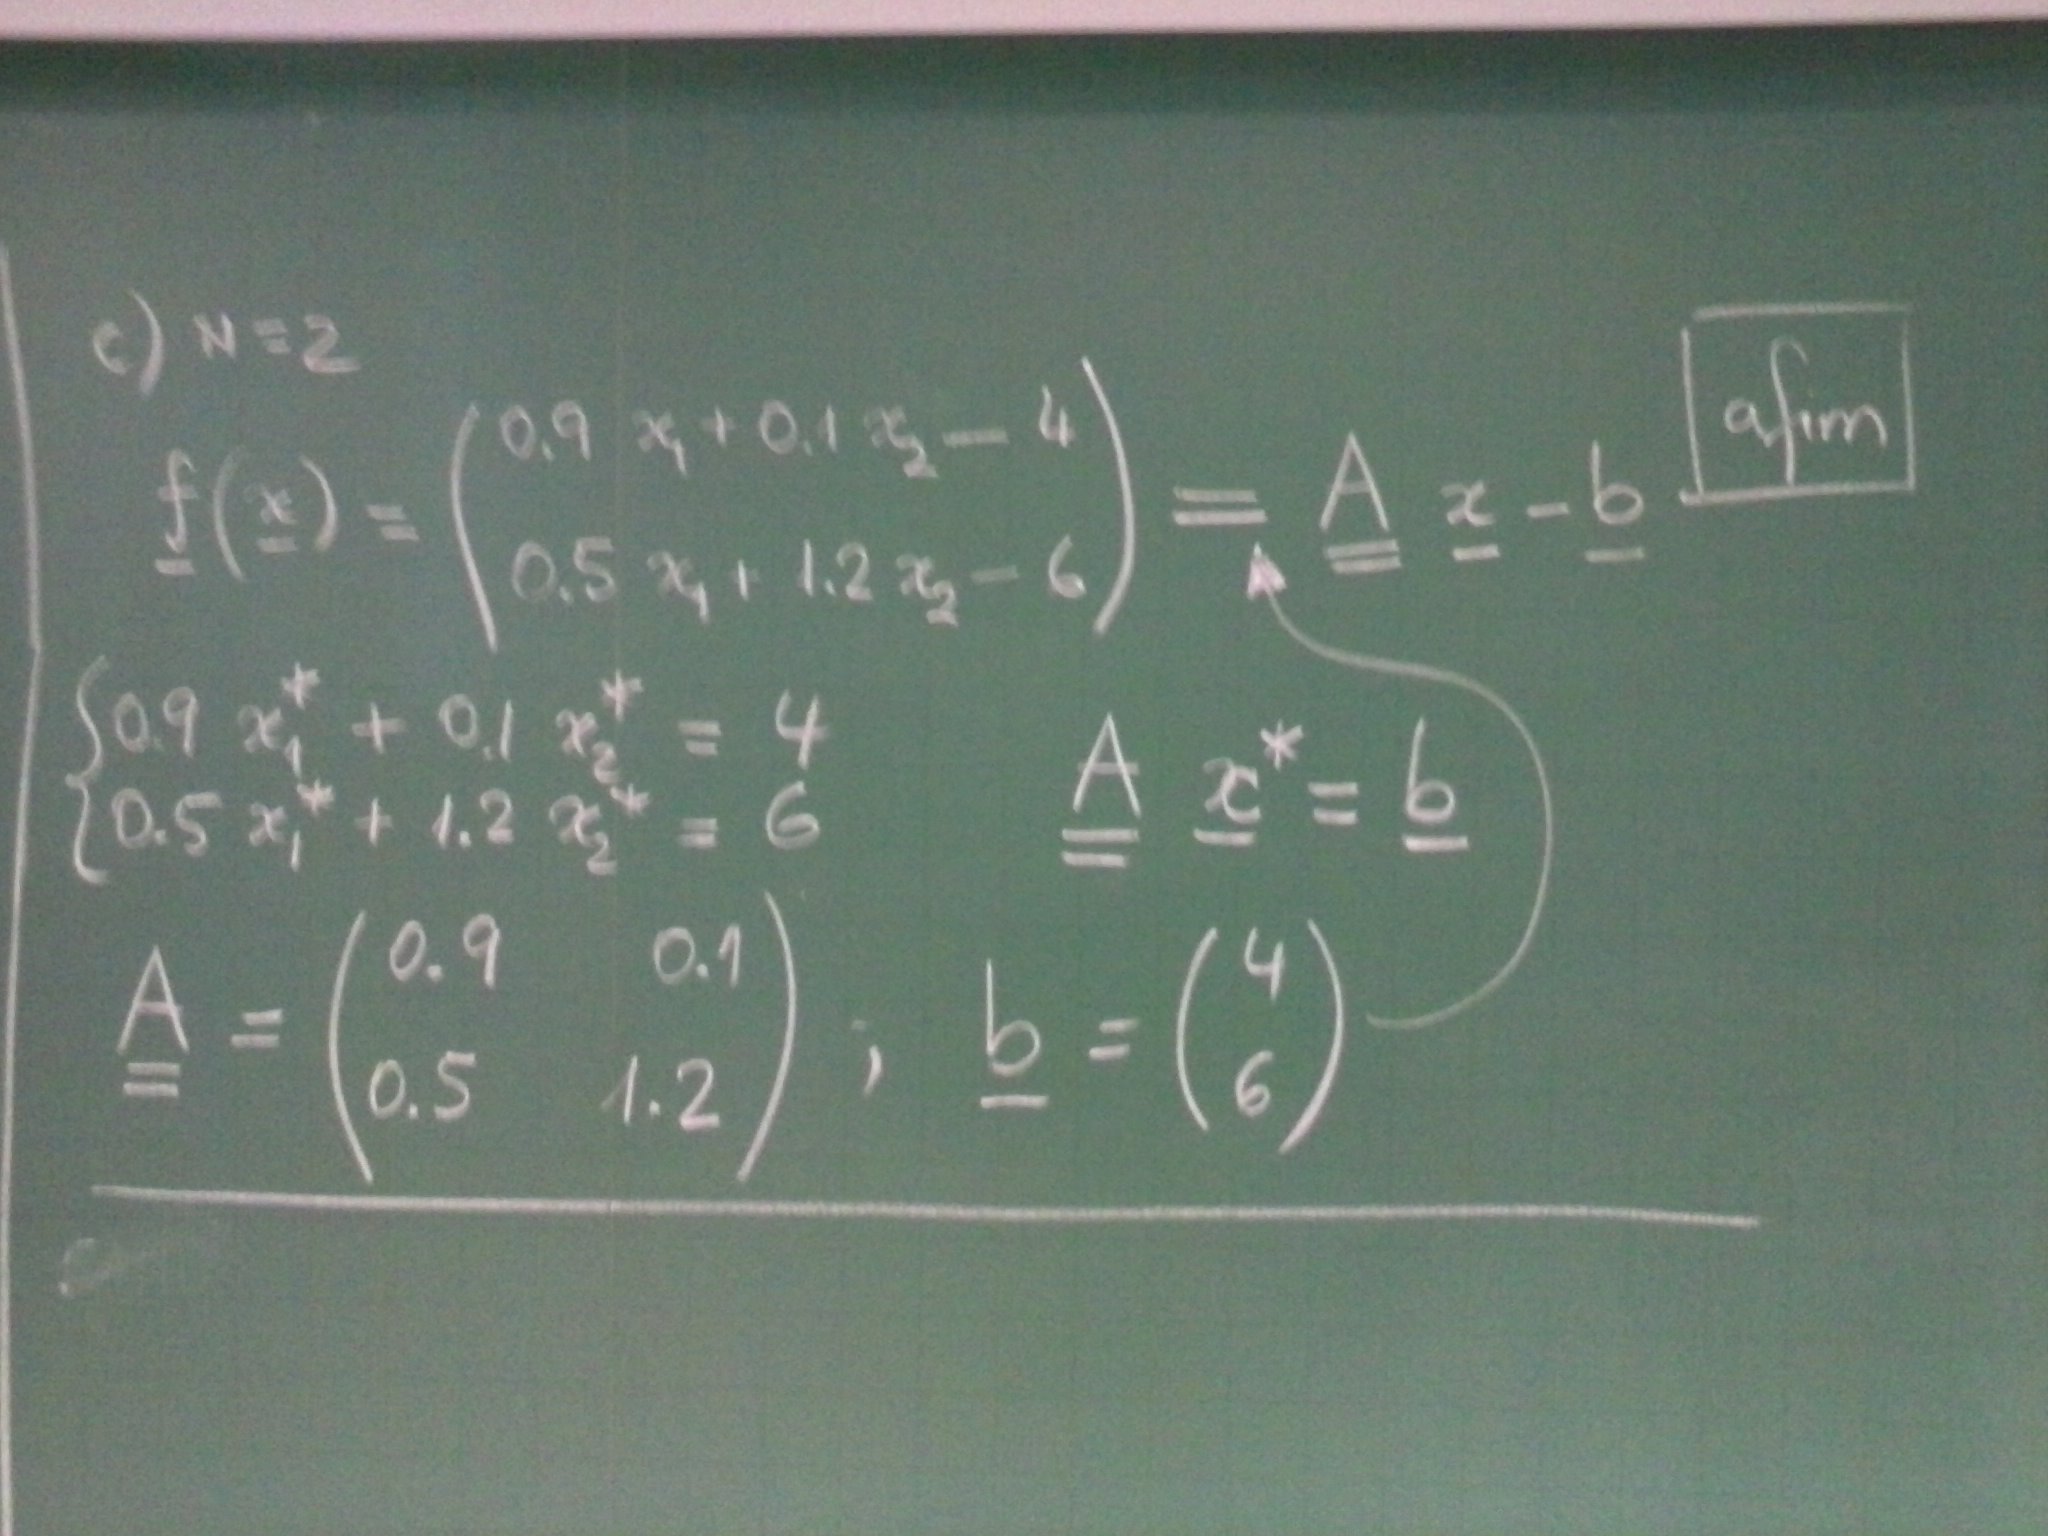 c) N=2
f(x) = ( 0.9 x₁ + 0.1 x₂ − 4
0.5 x₁ + 1.2 x₂ − 6 ) = A x − b afim
{ 0.9 x₁* + 0.1 x₂* = 4
0.5 x₁* + 1.2 x₂* = 6 A x* = b
A = ( 0.9 0.1
0.5 1.2 ) ; b = ( 4
6 )